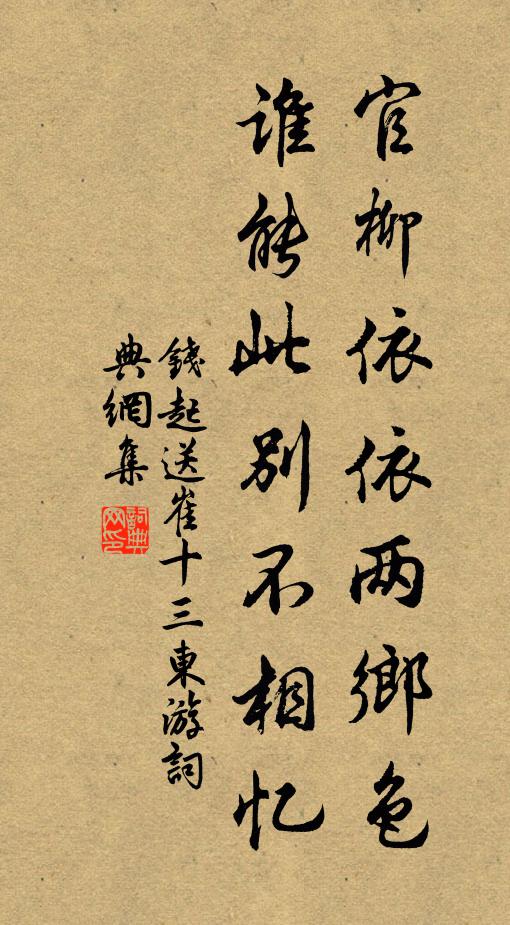 官柳依依两鄉色
誰能此别不相忆
錢起送崔十三東游詞
典網集
詞典网印